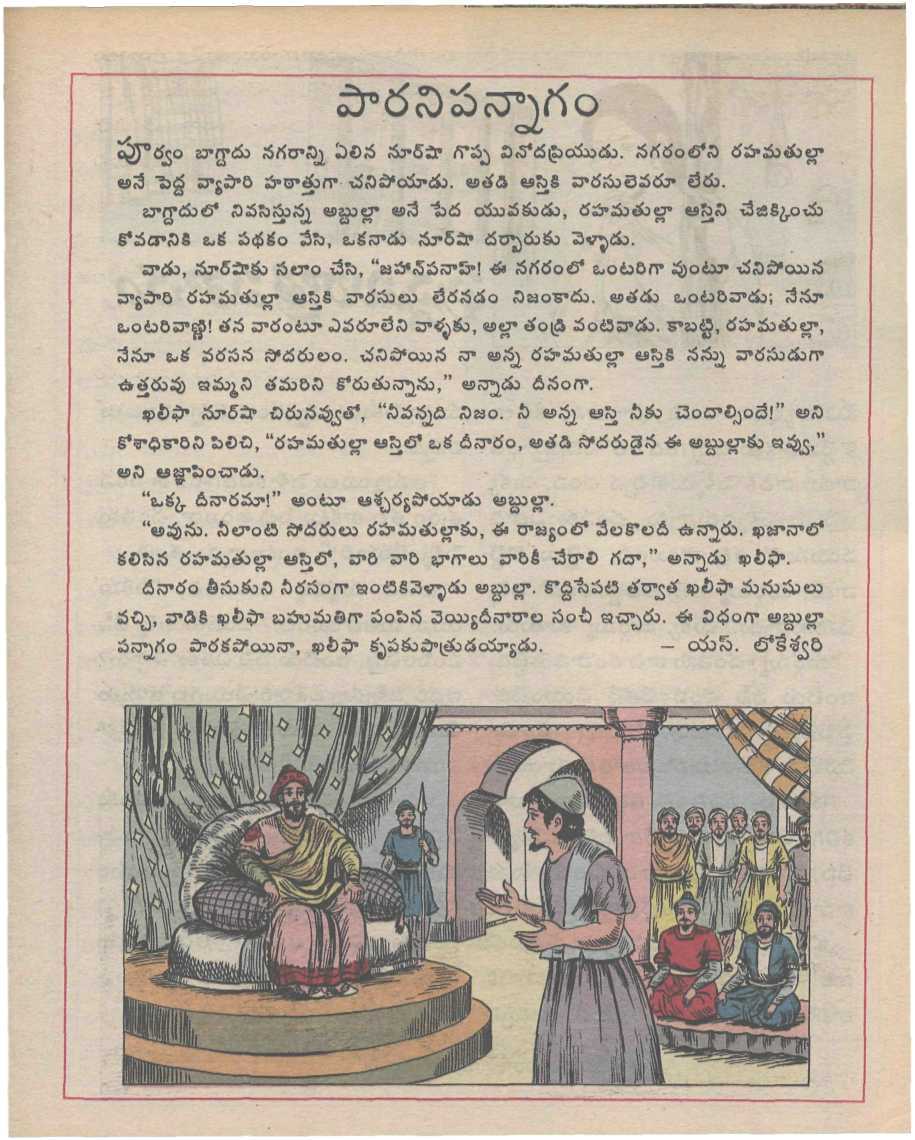 పారనిపన్నాగం
పూర్వం బాగ్దాదు నగరాన్ని ఏలిన నూర్‌షా గొప్ప వినోదప్రియుడు. నగరంలోని రహమతుల్లా
అనే పెద్ద వ్యాపారి హఠాత్తుగా చనిపోయాడు. అతడి ఆస్తికి వారసులెవరూ లేరు.
బాగ్దాదులో నివసిస్తున్న అబ్దుల్లా అనే పేద యువకుడు, రహమతుల్లా ఆస్తిని చేజిక్కించు
కోవడానికి ఒక పథకం వేసి, ఒకనాడు నూర్‌షా దర్బారుకు వెళ్ళాడు.
వాడు, నూర్‌షాకు సలాం చేసి, “జహాన్‌పనాహ్! ఈ నగరంలో ఒంటరిగా వుంటూ చనిపోయిన
వ్యాపారి రహమతుల్లా ఆస్తికి వారసులు లేరనడం నిజంకాదు. అతడు ఒంటరివాడు; నేనూ
ఒంటరివాణ్ణి! తన వారంటూ ఎవరూలేని వాళ్ళకు, అల్లా తండ్రి వంటివాడు. కాబట్టి, రహమతుల్లా,
నేనూ ఒక వరసన సోదరులం. చనిపోయిన నా అన్న రహమతుల్లా ఆస్తికి నన్ను వారసుడుగా
ఉత్తరువు ఇమ్మని తమరిని కోరుతున్నాను,” అన్నాడు దీనంగా.
ఖలీఫా నూర్‌షా చిరునవ్వుతో, “నీవన్నది నిజం. నీ అన్న ఆస్తి నీకు చెందాల్సిందే!” అని
కోశాధికారిని పిలిచి, “రహమతుల్లా ఆస్తిలో ఒక దీనారం, అతడి సోదరుడైన ఈ అబ్దుల్లాకు ఇవ్వు,”
అని ఆజ్ఞాపించాడు.
“ఒక్క దీనారమా!” అంటూ ఆశ్చర్యపోయాడు అబ్దుల్లా.
“అవును. నీలాంటి సోదరులు రహమతుల్లాకు, ఈ రాజ్యంలో వేలకొలదీ ఉన్నారు. ఖజానాలో
కలిసిన రహమతుల్లా ఆస్తిలో, వారి వారి భాగాలు వారికీ చేరాలి గదా,” అన్నాడు ఖలీఫా.
దీనారం తీసుకుని నీరసంగా ఇంటికివెళ్ళాడు అబ్దుల్లా. కొద్దిసేపటి తర్వాత ఖలీఫా మనుషులు
వచ్చి, వాడికి ఖలీఫా బహుమతిగా పంపిన వెయ్యిదీనారాల సంచీ ఇచ్చారు. ఈ విధంగా అబ్దుల్లా
పన్నాగం పారకపోయినా, ఖలీఫా కృపకుపాత్రుడయ్యాడు. – యస్. లోకేశ్వరి